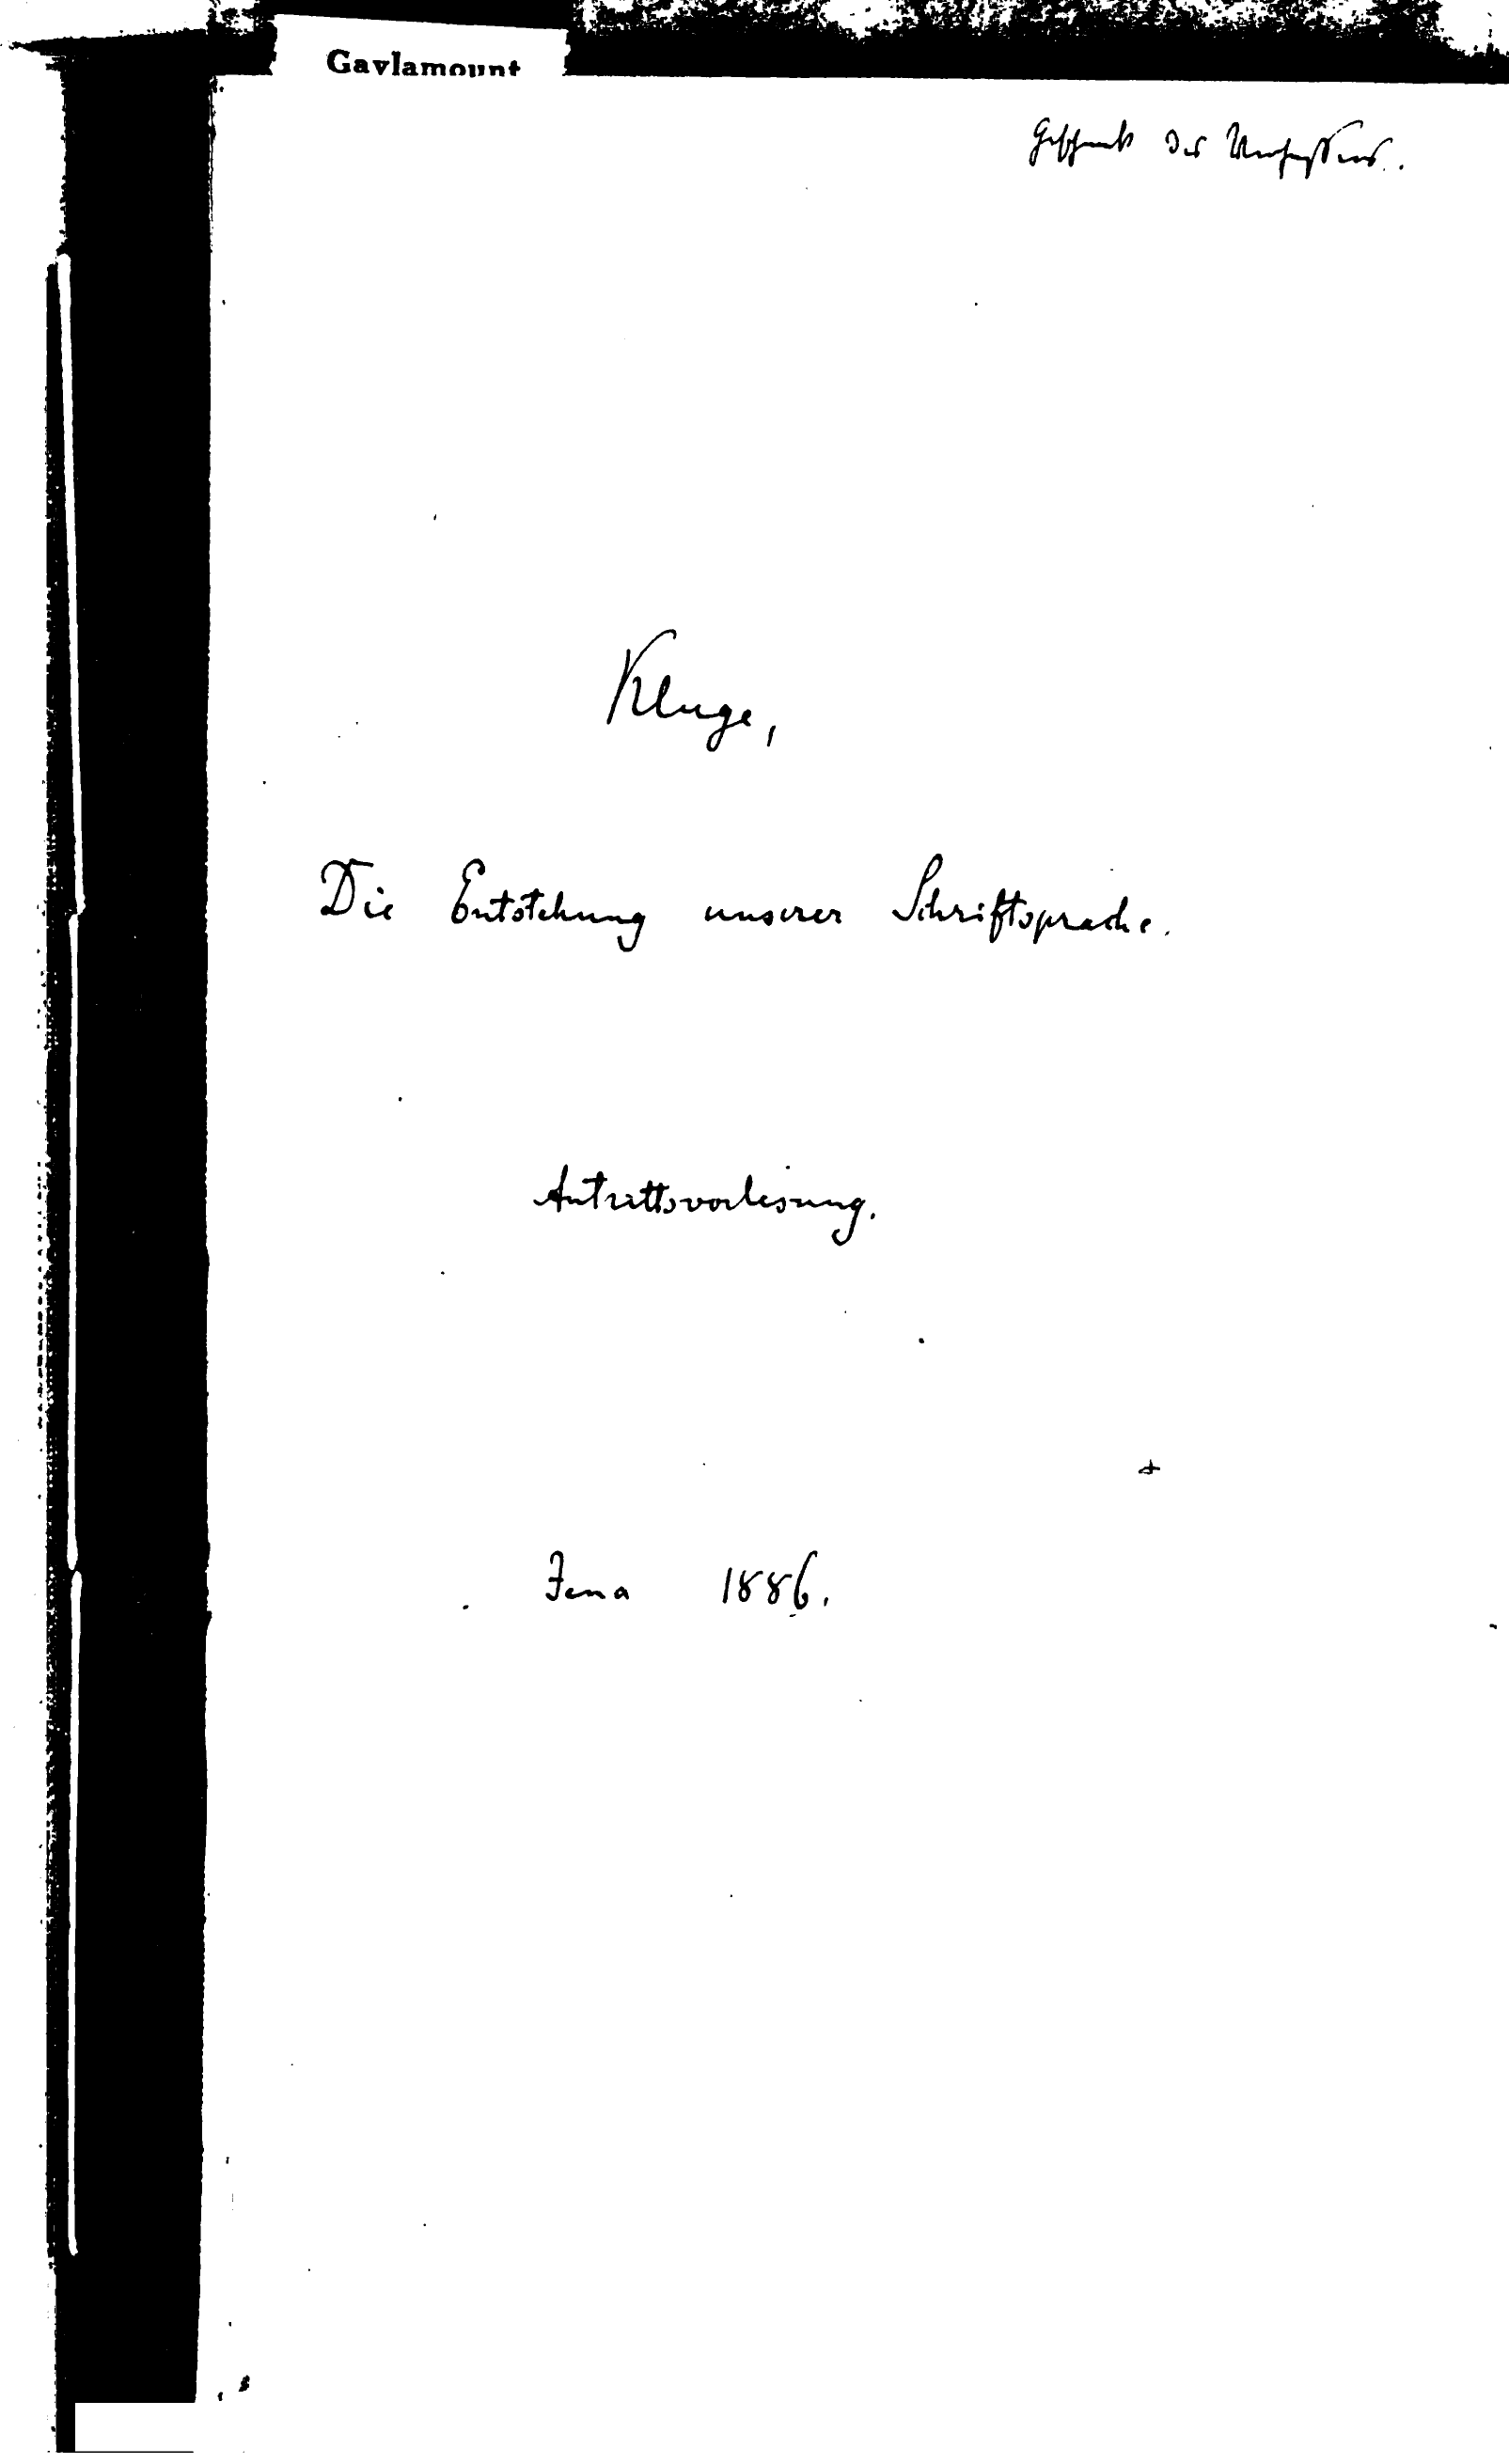 Gaylamount
Geschenk des Verfassers.
Kluge,
Die Entstehung unserer Schriftsprache.
Antrittsvorlesung.
Jena 1886.